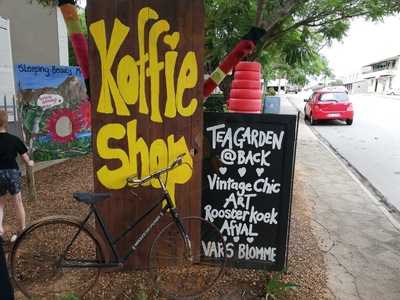 Koffie
Shop
Sleeping Beauty
TEAGARDEN
@BACK
Vintage Chic
ART
Roosterkoek
Afval
VARS BLOMME